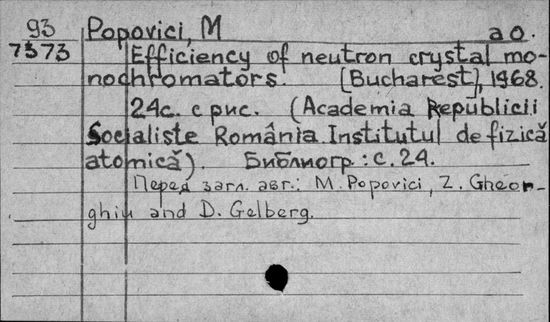 93 Popovici, M a o.
7373 Efficiency of neutron crystal mo-
nochromators. [Bucharest], 1968.
24с. с рис. (Academia Republicii
Socialiste România. Institutul de fizică
atomică). Библиогр: с. 24.
Перед загл. авт.: M. Popovici, Z. Gheor-
ghiu and D. Gelberg.